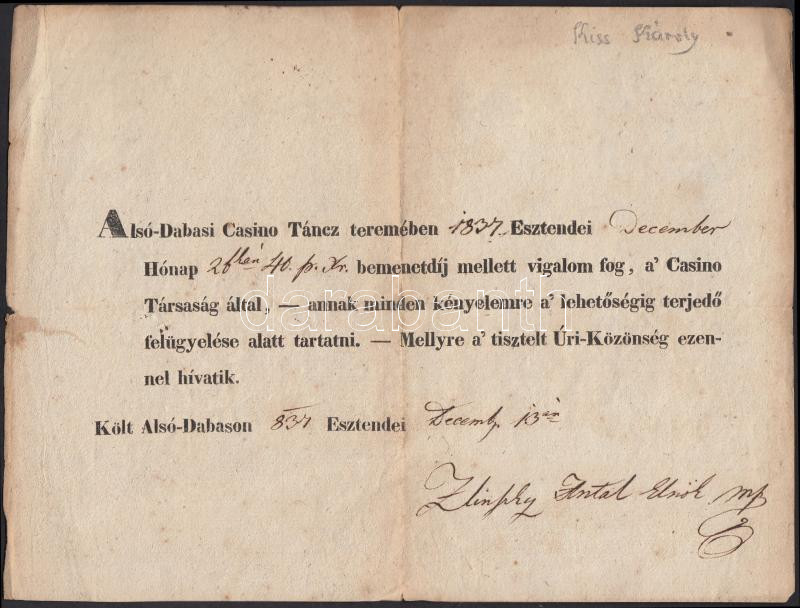 Kiss Károly
Alsó-Dabasi Casino Táncz teremében 1837. Esztendei December
Hónap 26kán 40. p. Xr. bemenetdíj mellett vigalom fog, a' Casino
Társaság által, — annak minden kényelemre a' lehetőségig terjedő
felügyelése alatt tartatni. — Mellyre a' tisztelt Úri-Közönség ezen-
nel hívatik.
Költ Alsó-Dabason 837 Esztendei Decemb. 13án
Zlinszky Antal Elnök mp
darabanth